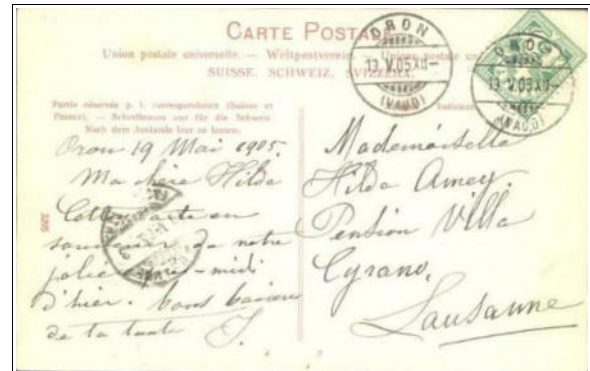 CARTE POSTALE
Union postale universelle. — Weltpostverein. — Unione postale
SUISSE. SCHWEIZ. SVIZZERA.
ORON
13 V.05 XII–
(VAUD)
ORON
13 V.05 XII–
(VAUD)
Partie réservée p. l. correspondance (Suisse et
France). — Schreibraum nur für die Schweiz
Nach dem Auslande leer zu lassen.
Oron 19 Mai 1905.
Ma chère Hilda
Cette carte en
souvenir de notre
jolie après-midi
d'hier. Bons baisers
de ta tante J.
Mademoiselle
Hilda Amey
Pension Villa
Cyrano,
Lausanne